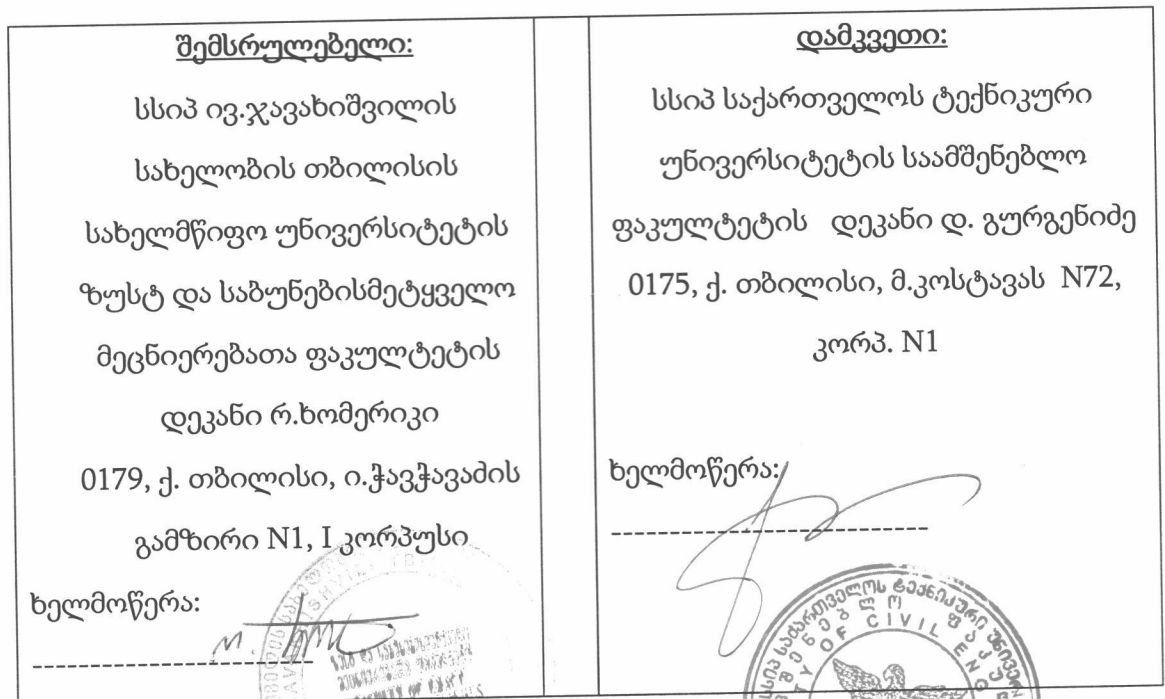 შემსრულებელი:
სსიპ ივ.ჯავახიშვილის
სახელობის თბილისის
სახელმწიფო უნივერსიტეტის
ზუსტ და საბუნებისმეტყველო
მეცნიერებათა ფაკულტეტის
დეკანი რ.ხომერიკი
0179, ქ. თბილისი, ი.ჭავჭავაძის
გამზირი N1, I კორპუსი
ხელმოწერა:
დამკვეთი:
სსიპ საქართველოს ტექნიკური
უნივერსიტეტის საამშენებლო
ფაკულტეტის დეკანი დ. გურგენიძე
0175, ქ. თბილისი, მ.კოსტავას N72,
კორპ. N1
ხელმოწერა:
სსიპ საქართველოს ტექნიკური
OF CIVIL